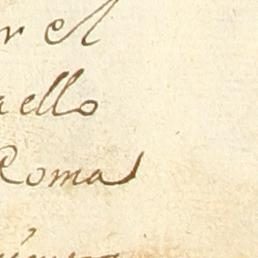 r el
aello
Roma